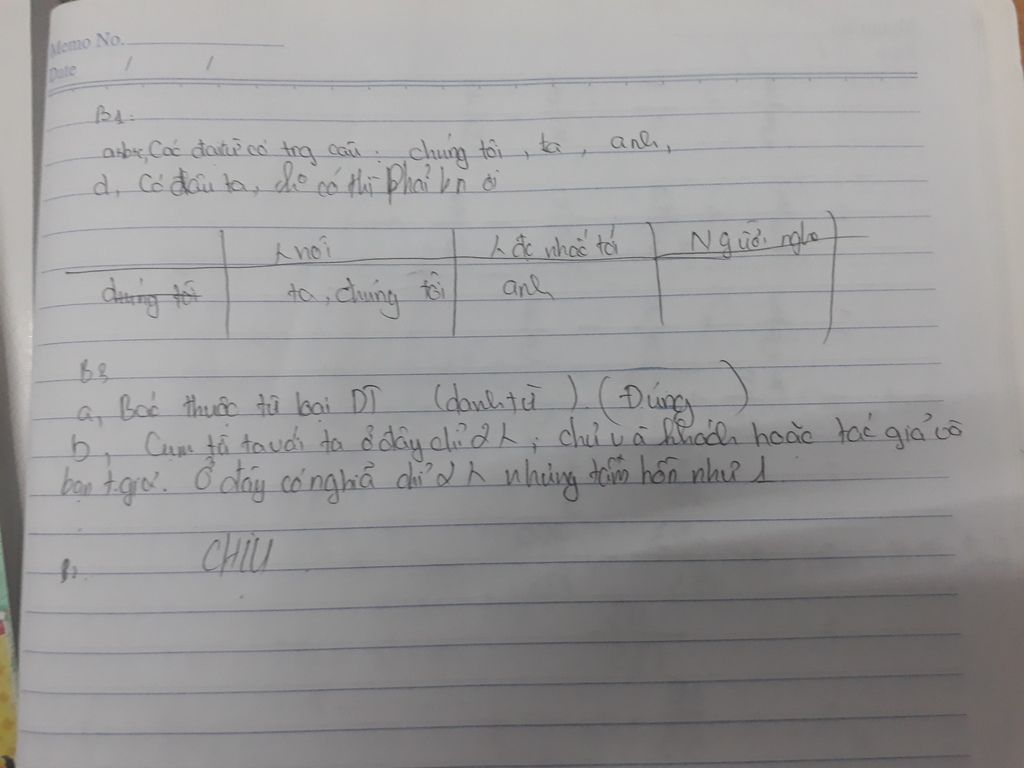 Memo No.
Date / /
B1:
a+b+c, Các đa từ có trg câu: chúng tôi, ta, anh,
d, Có đâu ta, có thì phải kn ơi
nói đc nhắc tới Người nghe
chúng tôi ta, chúng tôi anh
B3
a, Bác thuộc từ loại DT (danh từ). (Đúng)
b, Cụm từ ta với ta ở đây chỉ 2 ; chủ và khách hoặc tác giả và
bạn t.giả. Ở đây có nghĩa chỉ 2 nhưng tâm hồn như 1
B2. CHỊU